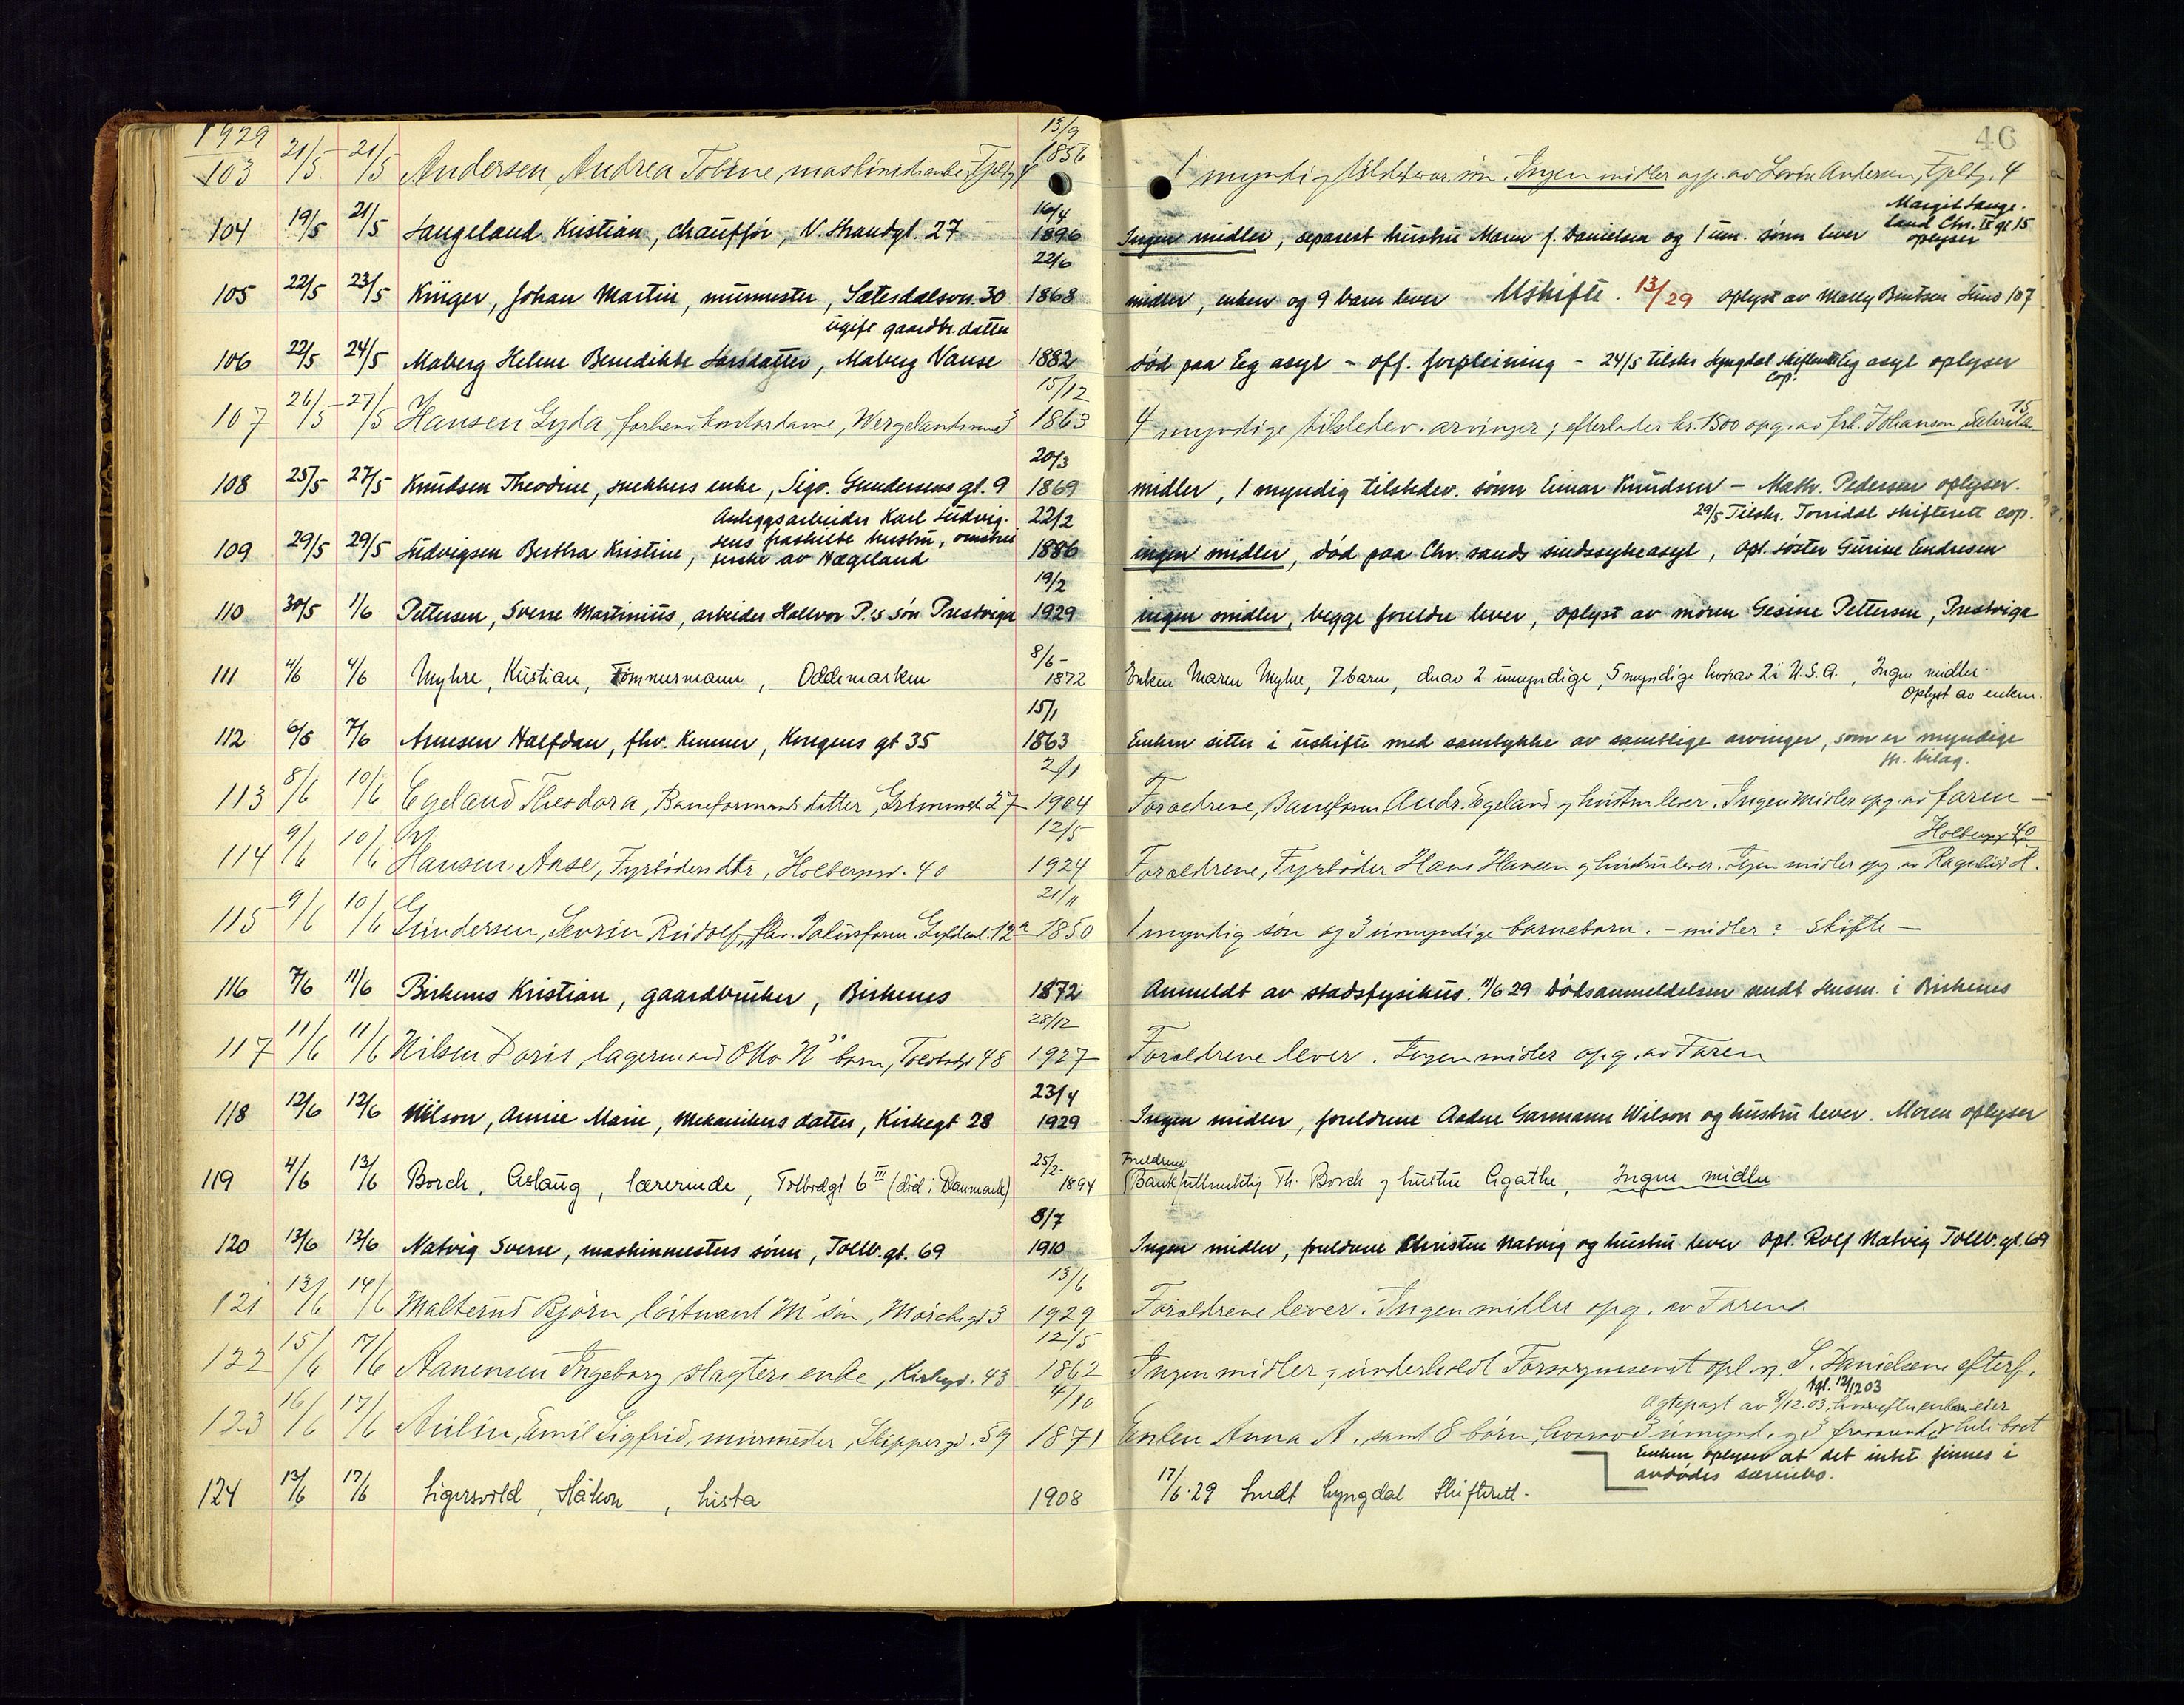 1929
46
103 21/5 21/5 Andersen, Andrea Tobine, maskinistenke, Fjeldg. 4 13/9 1856 1 myndig tilstedevær. søn. Ingen midler opg. av Andersen, Fjeldg. 4
104 19/5 21/5 Langeland Kristian, chauffør, V. Strandgt. 27 16/4 1896 Ingen midler, separert hustru Maren f. Danielsen og 1 um. sønn lever Margit Lange-
land Chr. IV gt 15
oplyser
105 22/5 23/5 Krüger, Johan Martin, murmester, Sætesdalsvn. 30 22/6 1868 midler, enken og 9 barn lever Uskifte. 13/29 oplyst av Mally Bentsen Lund 107
ugift gaardbr. datter
106 22/5 24/5 Maberg Helene Benedikte Larsdatter, Maberg Vanse 1882 død paa Eg asyl - off. forpleining - 24/5 tilskr Lyngdal skifterett Eg asyl oplyser
cop.
107 26/5 27/5 Hansen Gyda, forhenv. kontordame, Wergelandsvei 3 15/12 1863 4 myndige tilstedev. arvinger; efterlader kr. 1500 opg. av frk. Johanson 15
108 25/5 27/5 Knudsen Theodine, snekkers enke, Sigv. Gundersens gt. 9 20/3 1869 midler, 1 myndig tilstedev. sønn Einar Knudsen - Math. Pedersen oplyser.
Anleggsarbeider Karl Ludvig-
sens fraskilte hustru, omstrei-
29/5 Tilskr. Torridal skifterett cop.
109 29/5 29/5 Ludvigsen Bertha Kristine, ferske av Hægeland 22/2 1886 ingen midler, død paa Chr. sands sindssykeasyl, opl. søster Gurine Endresen
110 30/5 1/6 Pettersen, Sverre Martinius, arbeider Hallvor P.'s søn Prestvigen 19/2 1929 ingen midler, begge foreldre lever, oplyst av moren Gesine Pettersen, Prestvigen
111 4/6 4/6 Myhre, Kristian, Tømmermann, Oddemarken 8/6 - 1872 Enken Maren Myhre, 7 barn, derav 2 umyndige, 5 myndige hvorav 2 i U.S.A., Ingen midler.
Oplyst av enken.
112 6/6 7/6 Arnesen Halfdan, fhv. Kemner, Kongens gt 35 15/1 1863 Enken sitter i uskifte med samtykke av samtlige arvinger, som er myndige
jfr. bilag.
113 8/6 10/6 Egeland Theodora, Baneformands datter, Grimsvk 27 2/1 1904 Foreldrene, Baneform Andr. Egeland og hustru lever. Ingen midler opg. av faren -
114 9/6 10/6 Hansen Aase, Fyrbøders dtr, Holbergsv. 40 12/5 1924 Foreldrene, Fyrbøder Hans Hansen og hustru lever. Ingen midler opg. av Ragnhild H.
Holbergsg 40
115 9/6 10/6 Gundersen, Severin Rudolf, fhv. Politiform. Gyldenl. 12a 21/11 1850 1 myndig søn og 3 umyndige barnebarn. - midler? - skifte -
116 7/6 11/6 Birkenes Kristian, gaardbruker, Birkenes 1872 Anmeldt av stadsfysikus. 11/6 29 Dødsanmeldelsen sendt lensm. i Birkenes
117 11/6 11/6 Nilsen Doris, lagermand Otto N's barn, Toldbodg 48 28/12 1927 Foreldrene lever. Ingen midler opg. av Faren
118 12/6 12/6 Wilson, Annie Marie, Mekanikers datter, Kirkegt 28 23/4 1929 Ingen midler, foreldrene Aadne Garmann Wilson og hustru lever. Moren oplyser
119 4/6 13/6 Borch, Aslaug, lærerinde, Tolbodgt 6 III (død i Danmark) 25/2 - 1894 Foreldrene Bankfullmektig Th. Borch og hustru Agathe, Ingen midler.
120 13/6 13/6 Natvig Sverre, maskinmesters sønn, Tollb. gt. 69 8/7 1910 Ingen midler, foreldrene Christen Natvig og hustru lever opl. Rolf Natvig Tollb. gt. 69
121 13/6 14/6 Malterud Bjørn, løitnant M' søn, Møschgt 3 13/6 1929 Foreldrene lever. Ingen midler opg. av Faren.
122 15/6 17/6 Aanensen Ingeborg slagters enke, Kirkegd. 43 12/5 1862 Ingen midler; underholdt Forsorgsvesenet opl. S. Danielsens efterf.
tgl. 12/12 03
Ægtepagt av 9/12.03, hvorefter enken eier
123 16/6 17/6 Aulin, Emil Sigfrid, murmester, Skipperg. 59 4/10 1871 Enken Anna A. samt 8 børn, hvorav 3 umynd. hele boet
Enken oplyser at det intet finnes i
avdødes særeie.
124 13/6 17/6 Ligersvold, Håkon, Lista 1908 17/6.29 Sendt Lyngdal Skifterett.